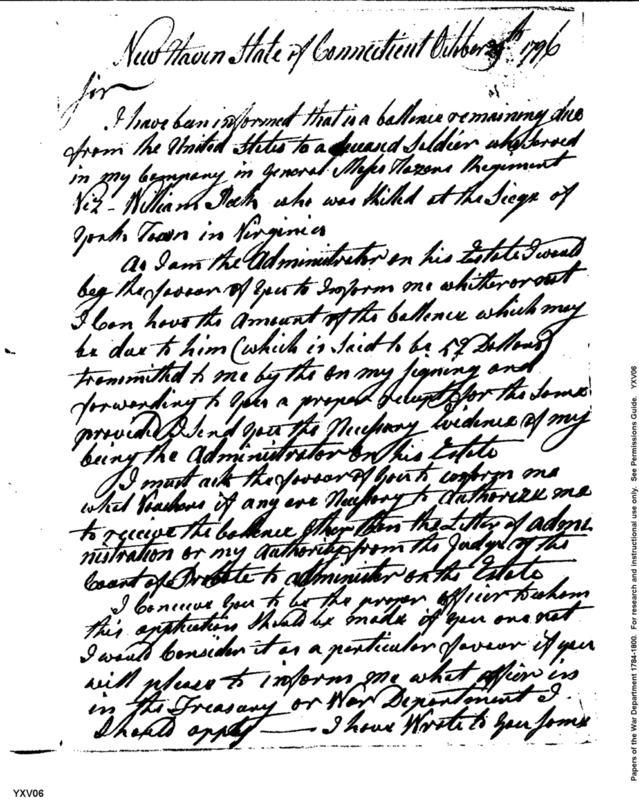 New Haven State of Connecticut October 29th 1796
Sir
I have been informed that is a ballence remaining due
from the United States to a deceased Soldier who Served
in my Company in General Moses Hazens Regiment
Viz - William who was Killed at the Siege of
York Town in Virginia
As I am the Administrator on his Estate I would
beg the favour of You to Inform me whither or not
I Can have the Amount of the ballence which may
be due to him (which is Said to be Dollars)
transmitted to me by the on my Signing and
forwarding to You a proper receipt for the Same
provided I Send You the Necessary Evidence of my
being the Administrator on his Estate
I must ask the favour of You to inform me
what Vouchers if any are Necessary to Authorize me
to receive the ballence other then the Letter of admi
nistration or my Authority from the Judge of the
Court of Probate to administer on the Estate
I Conceive You to be the proper officer to whom
this application Should be made if You are not
I would Consider it as a particular favour if you
will please to inform me what officer in
in the Treasury or War Department I
Should apply — I have Wrote to You Some
Papers of the War Department 1784-1800. For research and instructional use only. See Permissions Guide. YXV06
YXV06